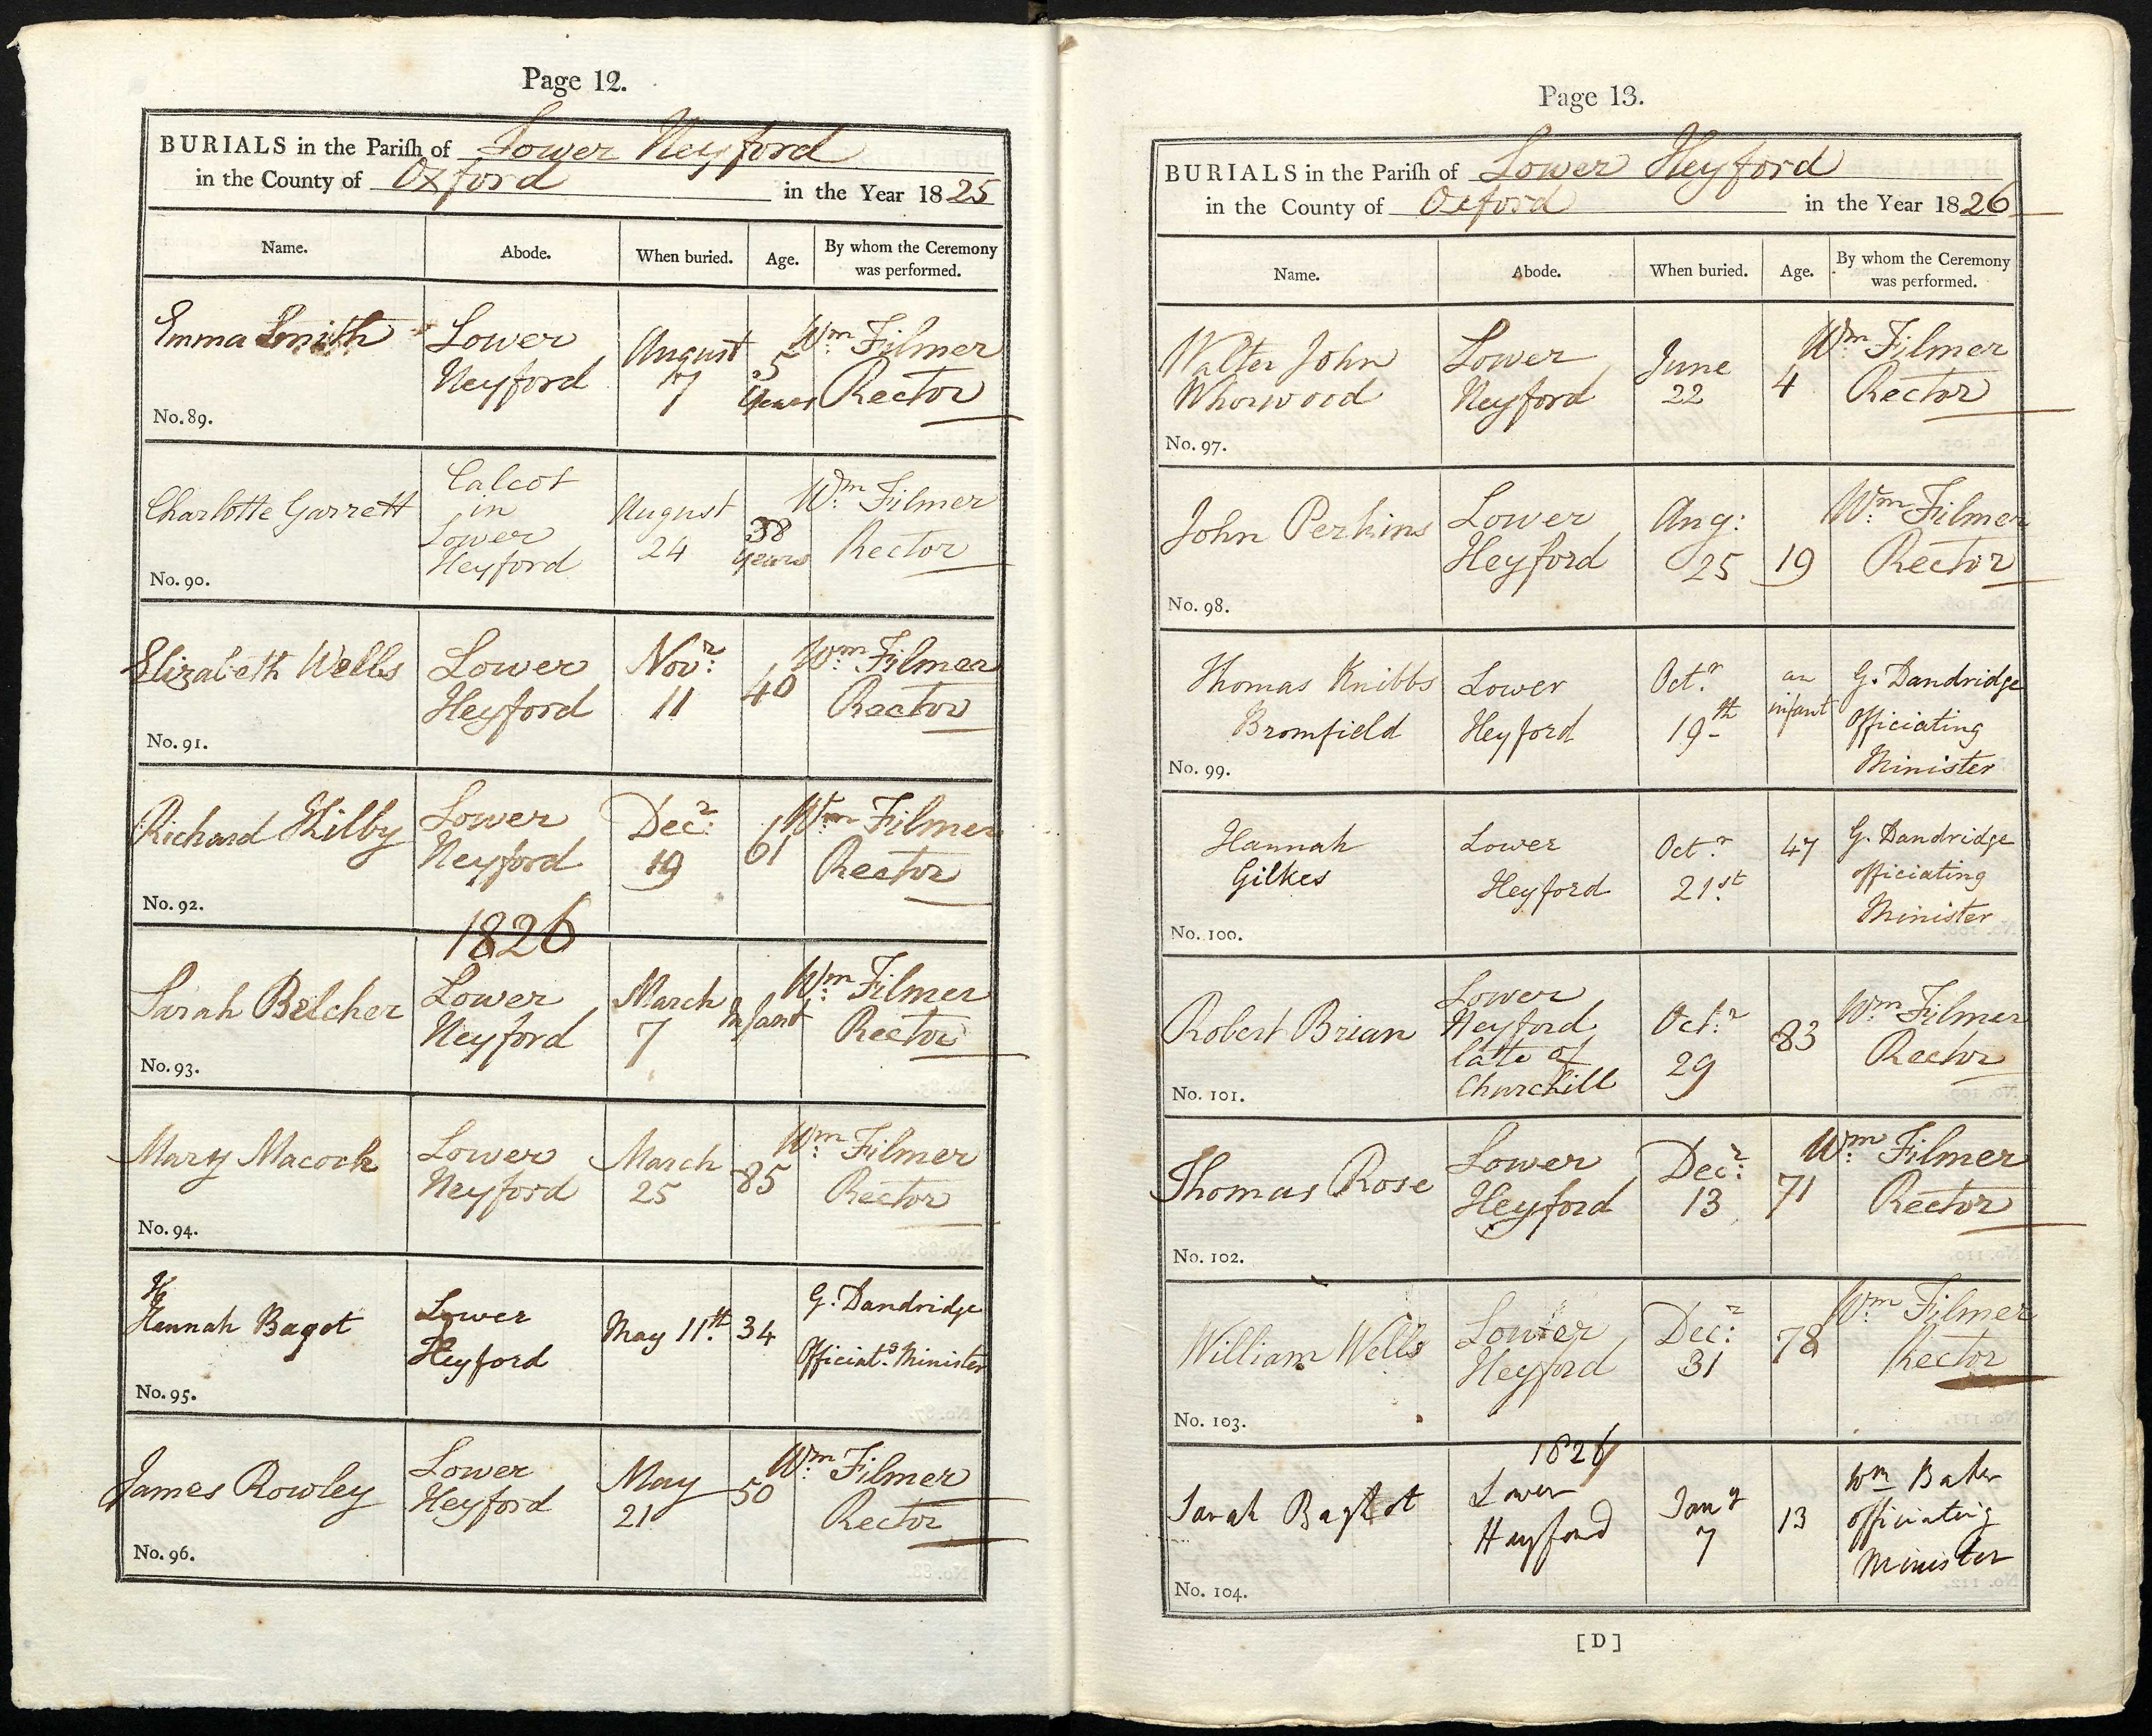 Page 12.
BURIALS in the Pariſh of Lower Heyford
in the County of Oxford in the Year 1825
Name. Abode. When buried. Age. By whom the Ceremony
was performed.
Emma Smith Lower August 5 Wm. Filmer
Heyford 7 Years Rector
No. 89.
Calcot
Charlotte Garrett in August 38 Wm. Filmer
Lower 24 Years Rector
Heyford
No. 90.
Elizabeth Wells Lower Novr. 40 Wm. Filmer
Heyford 11 Rector
No. 91.
Richard Lower Decr. 61 Wm. Filmer
Heyford 19 Rector
No. 92.
1826
Sarah Belcher Lower March Infant Wm. Filmer
Heyford 7 Rector
No. 93.
Mary Macock Lower March 85 Wm. Filmer
Heyford 25 Rector
No. 94.
H
Hannah Bagot Lower May 11th. 34 G. Dandridge
Heyford Officiatg. Minister
No. 95.
James Rowley Lower May 50 Wm. Filmer
Heyford 21 Rector
No. 96.
Page 13.
BURIALS in the Pariſh of Lower Heyford
in the County of Oxford in the Year 1826
Name. Abode. When buried. Age. By whom the Ceremony
was performed.
Walter John Lower June 4 Wm. Filmer
Whorwood Heyford 22 Rector
No. 97.
John Perkins Lower Aug: 19 Wm. Filmer
Heyford 25 Rector
No. 98.
Thomas Knibbs Lower Octr. an G. Dandridge
Bromfield Heyford 19th infant Officiating
Minister
No. 99.
Hannah Lower Octr. 47 G. Dandridge
Gilkes Heyford 21st. officiating
Minister
No. 100.
Lower
Robert Brian Heyford Octr. 83 Wm. Filmer
late of 29 Rector
Churchill
No. 101.
Thomas Rose Lower Decr. 71 Wm. Filmer
Heyford 13 Rector
No. 102.
William Wells Lower Decr. 78 Wm. Filmer
Heyford 31 Rector
No. 103.
Sarah Lower Jany 13 Wm Baker
Heyford 7 officiating
Minister
No. 104.
[ D ]